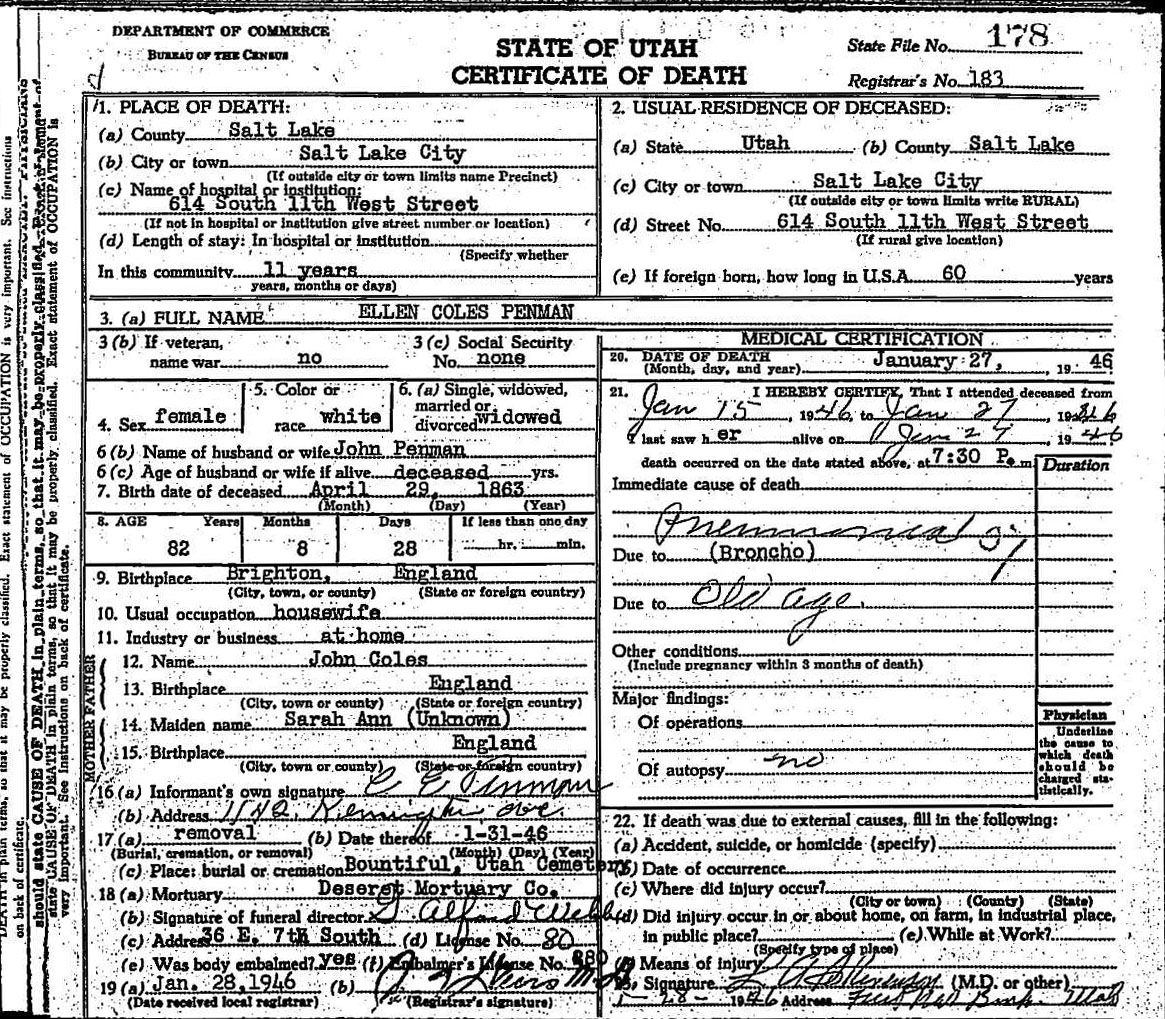 DEPARTMENT OF COMMERCE
BUREAU OF THE CENSUS
STATE OF UTAH
CERTIFICATE OF DEATH
State File No. 178
Registrar's No. 183
1. PLACE OF DEATH:
(a) County Salt Lake
(b) City or town Salt Lake City
(If outside city or town limits name Precinct)
(c) Name of hospital or institution:
614 South 11th West Street
(If not in hospital or institution give street number or location)
(d) Length of stay: In hospital or institution
(Specify whether
In this community 11 years
years, months or days)
2. USUAL RESIDENCE OF DECEASED:
(a) State Utah (b) County Salt Lake
(c) City or town Salt Lake City
(If outside city or town limits write RURAL)
(d) Street No. 614 South 11th West Street
(If rural give location)
(e) If foreign born, how long in U.S.A. 60 years
3. (a) FULL NAME ELLEN COLES PENMAN
3 (b) If veteran, name war no
3 (c) Social Security No. none
4. Sex female
5. Color or race white
6. (a) Single, widowed, married or divorced widowed
6 (b) Name of husband or wife John Penman
6 (c) Age of husband or wife if alive deceased yrs.
7. Birth date of deceased April 29, 1863
(Month) (Day) (Year)
8. AGE Years Months Days If less than one day
82 8 28 hr. min.
9. Birthplace Brighton, England
(City, town, or county) (State or foreign country)
10. Usual occupation housewife
11. Industry or business at home
FATHER
12. Name John Coles
13. Birthplace England
(City, town or county) (State or foreign country)
MOTHER
14. Maiden name Sarah Ann (Unknown)
15. Birthplace England
(City, town or county) (State or foreign country)
16 (a) Informant's own signature C E Penman
(b) Address
17 (a) removal (b) Date thereof 1-31-46
(Burial, cremation, or removal) (Month) (Day) (Year)
(c) Place: burial or cremation Bountiful, Utah Cemetery
18 (a) Mortuary Deseret Mortuary Co.
(b) Signature of funeral director
(c) Address 36 E. 7th South (d) License No. 80
(e) Was body embalmed? yes (f) Embalmer's License No.
19 (a) Jan. 28, 1946 (b)
(Date received local registrar) (Registrar's signature)
MEDICAL CERTIFICATION
20. DATE OF DEATH January 27, 19 46
(Month, day, and year)
21. I HEREBY CERTIFY, That I attended deceased from
Jan 15, 1946, to Jan 27, 1946
I last saw her alive on Jan 27, 1946
death occurred on the date stated above, at 7:30 P. m.
Duration
Immediate cause of death
Pneumonia
Due to (Broncho)
Due to Old age.
Other conditions
(Include pregnancy within 3 months of death)
Major findings:
Of operations
Of autopsy no
Physician
Underline
the cause to
which death
should be
charged sta-
tistically.
22. If death was due to external causes, fill in the following:
(a) Accident, suicide, or homicide (specify)
(b) Date of occurrence
(c) Where did injury occur?
(City or town) (County) (State)
(d) Did injury occur in or about home, on farm, in industrial place,
in public place? (e) While at Work?
(Specify type of place)
Means of injury
Signature (M.D. or other)
1-28-1946 Address